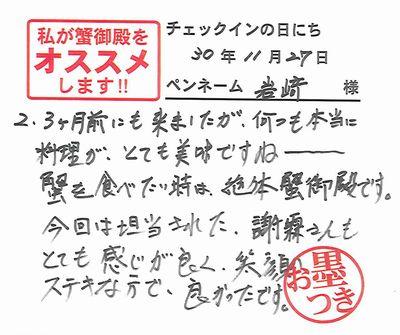 私が蟹御殿を
オススメ
します!!
チェックインの日にち
30年11月27日
ペンネーム 岩崎 様
2.3ヶ月前にも来ましたが、何つも本当に
料理が、とても美味ですねー
蟹を食べたい時は、絶体蟹御殿です。
今回は担当された、謝霖さんも
とても感じが良く、笑顔
ステキな方で、良かったです。
お墨つき